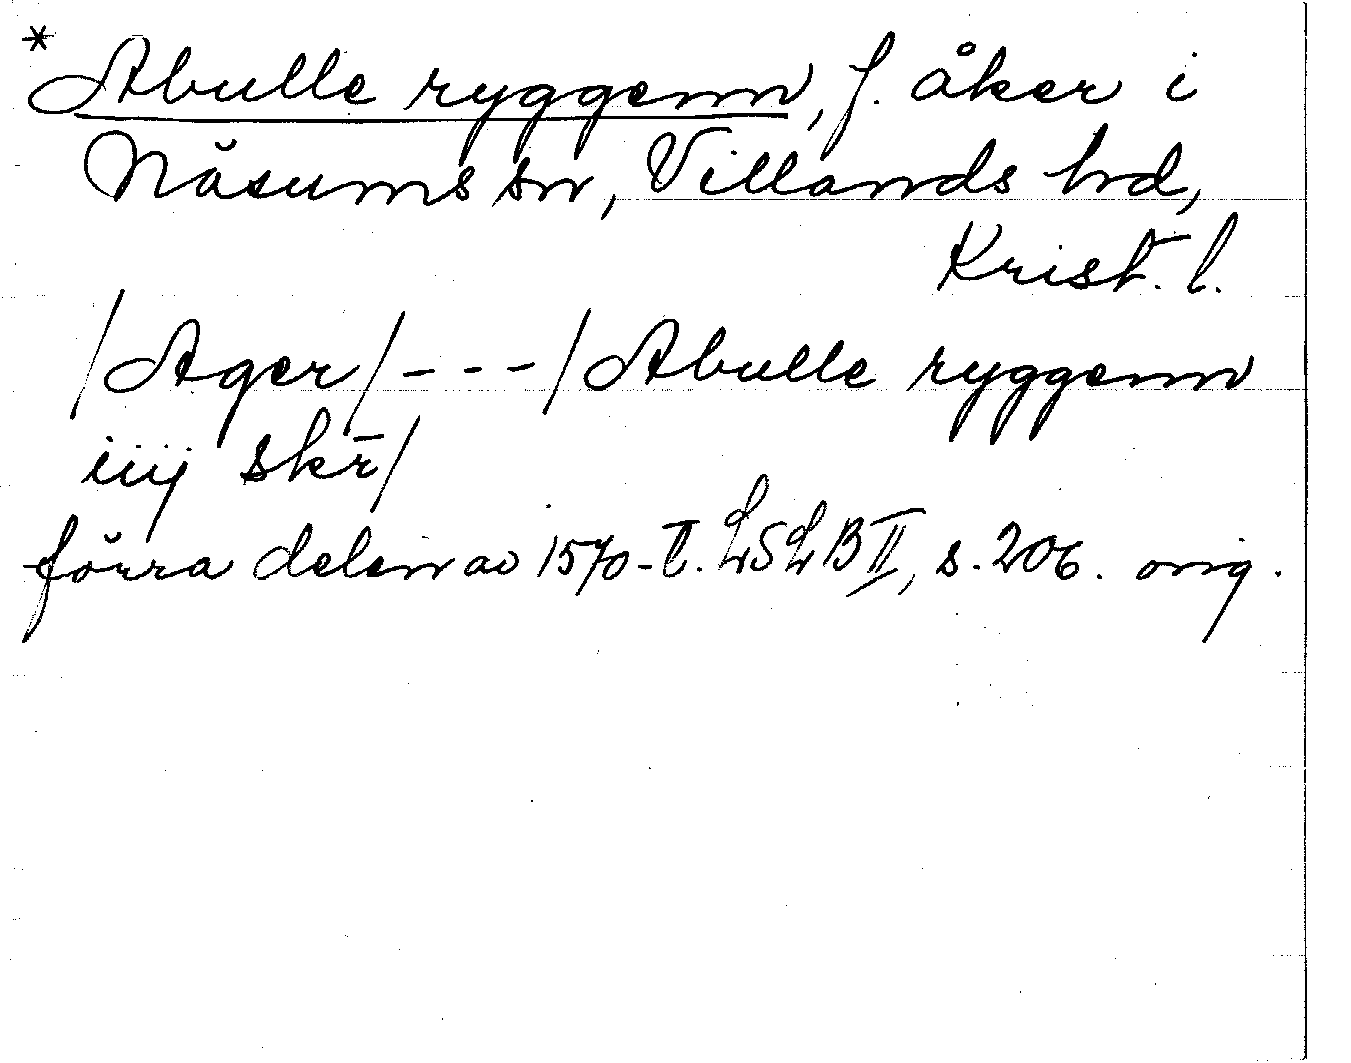 * Abulle ryggenn, f. åker i
Näsums sn, Villands hd,
Krist. l.
/Ager/ - - - / Abulle ryggenn
iiij skr̄/
förra delen av 1570-t. LSLB II, s. 206. orig.